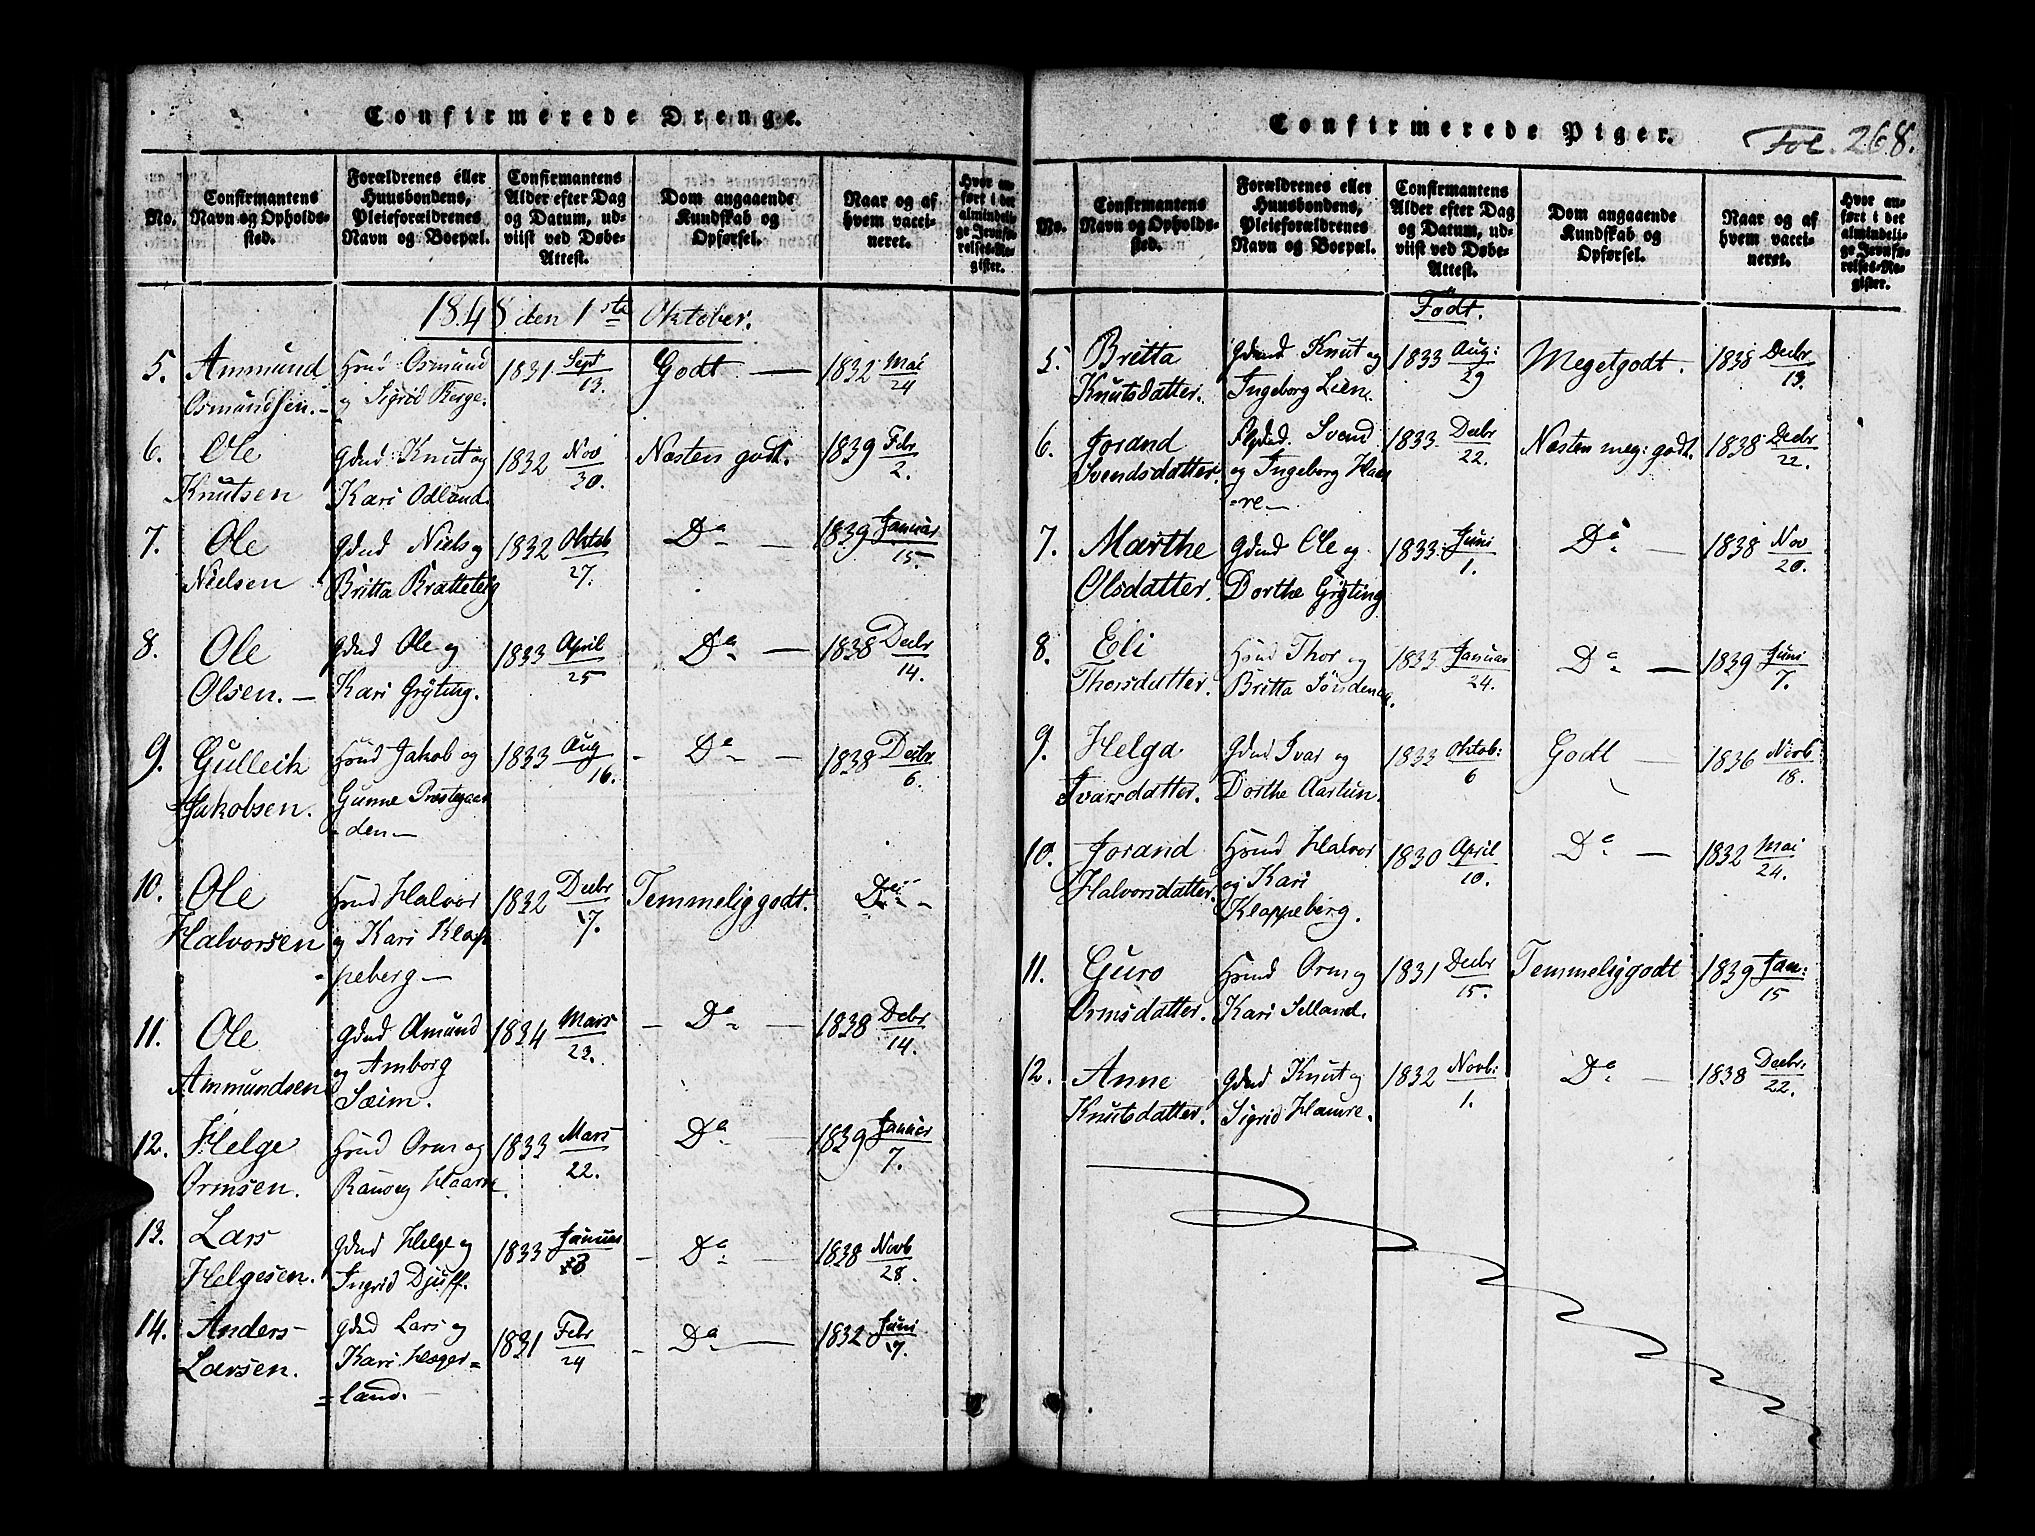 Confirmerede Drenge.
No.
Confirmantens Navn og Opholdssted.
Forældrenes eller Huusbondens, Pleieforældrenes Navn og Boepæl.
Confirmantens Alder efter Dag og Datum, udviist ved Døbe-Attest.
Dom angaaende Kundskab og Opførsel.
Naar og af hvem vaccineret.
Hvor anført i det almindelige Jevnførelses-Register.
1848 den 1ste Oktober.
5. Ammund Hmd Osmund 1831 Sept 13. Godt — 1832 Mai 24
Osmundsen.- og Sigrid Berge.
6. Ole Gdmd: Knut og 1832 Nov 30. Næsten godt. 1839 Febr 2.
Knutsen Kari Odland.
7. Ole Gdmd Niels og 1832 Oktob 27. Do — 1839 Januar 15.
Nielsen Britta Bratteteig
8. Ole Gdmd Ole og 1833 April 25 Do — 1838 Decbr 14.
Olsen. — Kari Grÿting.
9. Gulleik Hsmd Jakob og 1833 Aug 16. - Do — 1838 Decbr 6.
Jakobsen. Gunne Prestegaar
-den —
10. Ole Hsmd Halvor 1832 Decbr 17. Temmelig godt. Do -
Halvorsen og Kari Klap
-peberg —
11. Ole Gdmd Amund 1834 Mars 23. - Do — 1838 Debr 14.
Ammundsen og Amborg
Sæim.
12. Helge Hsmd Orm og 1833 Mars 22. Do — 1839 Januar 7.
Ormsen. Ranveg Haarre.
13. Lars Gdmd Helge og 1833 Januar - Do — 1838 Novb 28.
Helgesen. Ingrid Djuff.
14. Anders Gdmd Lars og 1831 Febr 24 - Do — 1832 Juni 17.
Larsen. Kari Hæger=
=land. —
Confirmerede Piger.
Fol. 268.
No.
Confirmantens Navn og Opholdssted.
Forældrenes eller Huusbondens, Pleieforældrenes Navn og Boepæl.
Confirmantens Alder efter Dag og Datum, udviist ved Døbe-Attest.
Dom angaaende Kundskab og Opførsel.
Naar og af hvem vaccineret.
Hvor anført i det almindelige Jevnførelses-Register.
Født.
5. Britta Gdmd Knut og 1833 Aug: 29 Meget godt. 1838 Decbr 13.
Knutsdatter. Ingeborg Lien.
6. Jorand Svend 1833 Decbr 22. Næsten meg: godt. 1838 Decbr 22.
Svendsdatter. og Ingeborg Haar
-re —
7. Marthe Gdmd Ole og 1833 Juni 1. Do — 1838 Nov 20.
Olsdatter. Dorthe Grÿting
8. Eli Hsmd Thor og 1833 Januar 24. Do — 1839 Juni 7.
Thorsdatter. Britta
9. Helga Gdmd Ivar og 1833 Oktob: 6 Godt — 1836 Novb 18.
Ivarsdatter. Dorthe Aartun.
10. Jorand Hsmd Halvor 1830 April 10. Do — 1832 Mai 24.
Halvorsdatter. og Kari
Klappeberg.
11. Guro Hsmd Orm og 1831 Decbr 15. Temmelig godt 1839 Jan: 15
Ormsdatter. Kari Selland.
12. Anne Gdmd Knut og 1832 Novb: 1. Do — 1838 Decbr. 22.
Knutsdatter. Sigrid Hamre.